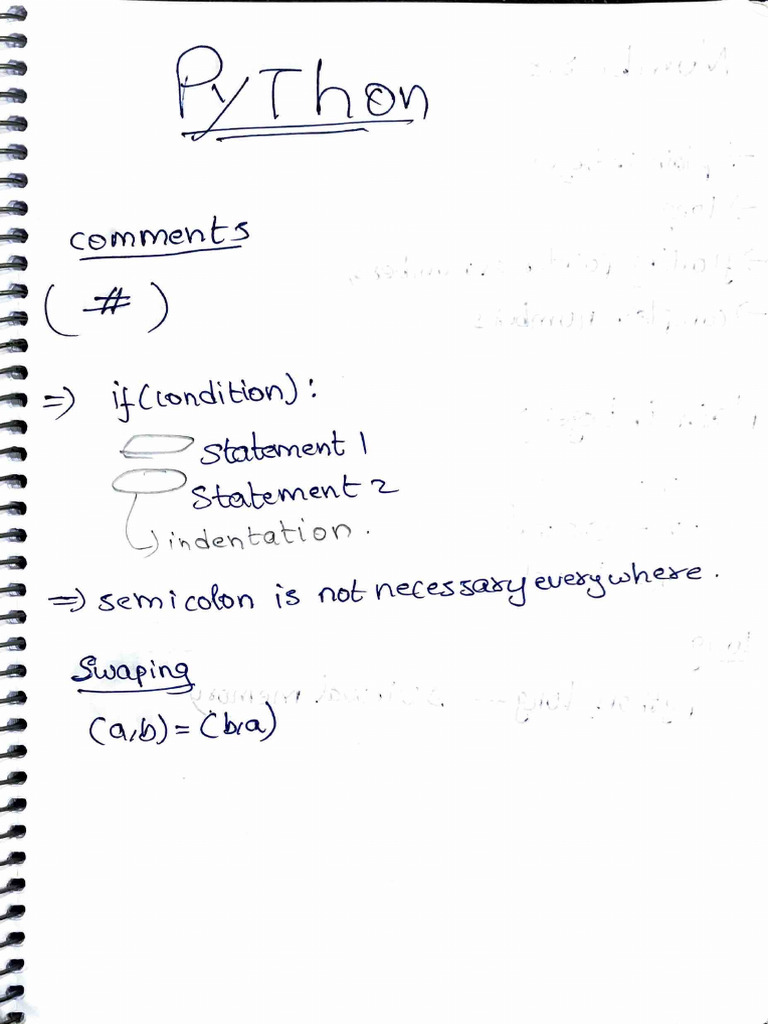 PyThon
comments
( # )
=> if(condition):
statement 1
statement 2
indentation.
=> semicolon is not necessary everywhere.
Swaping
(a,b) = (b,a)